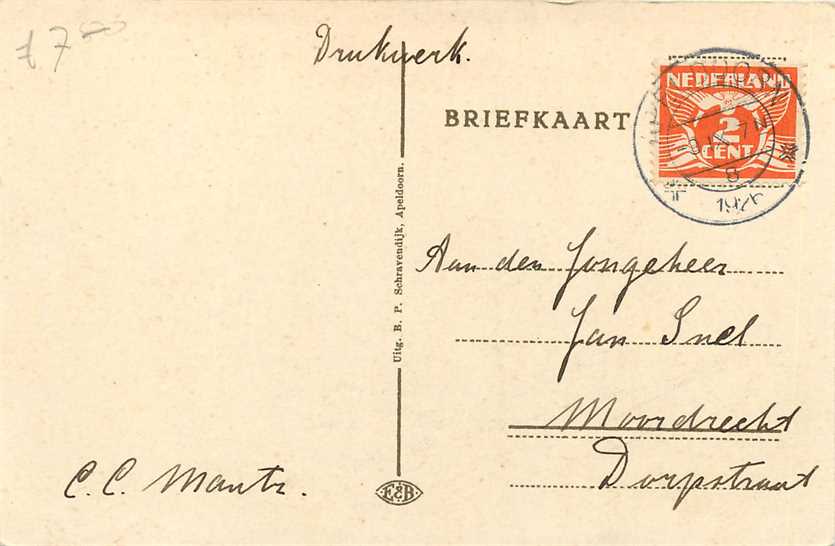 Drukwerk.
BRIEFKAART
NEDERLAND
2
CENT
1926
Aan den Jongeheer
Jan Snel
Moordrecht
Dorpstraat
C. C. Mantz.
Uitg. B. P. Schravendijk, Apeldoorn.
E&B